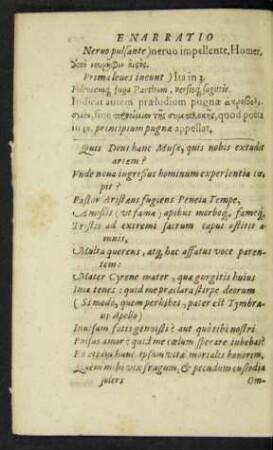 ENARRATIO
Neruo pulsante) neruo impellente, Homer.
Prima leues ineunt) Ita in 3.
Fidentemq; fuga Parthum, versisq; sagittis.
Indicat autem præludium pugnæ
quod postea
in principium pugnæ appellat.
Quis Deus hanc Musæ, quis nobis extudit
artem?
Vnde noua ingressus hominum experientia cæ
pit?
Pastor Aristæus fugiens Peneia Tempe,
Amissis (vt fama) apibus morboq;, fameq;,
Tristis ad extremi sacrum caput astitit a-
mnis,
Multa querens, atq; hac affatus voce paren-
tem:
Mater Cyrene mater, quæ gurgitis huius
Ima tenes: quid me præclara stirpe deorum
(Si modò, quem perhibes, pater est Tymbræ-
us Apollo)
Inuisum fatis genuisti? aut quò tibi nostri
Pulsus amor? quid me cælum sperare iubebas?
En etiam hunc ipsum vitæ mortalis honorem,
Quem mihi vix frugum, & pecudum custodia
solers
Om-